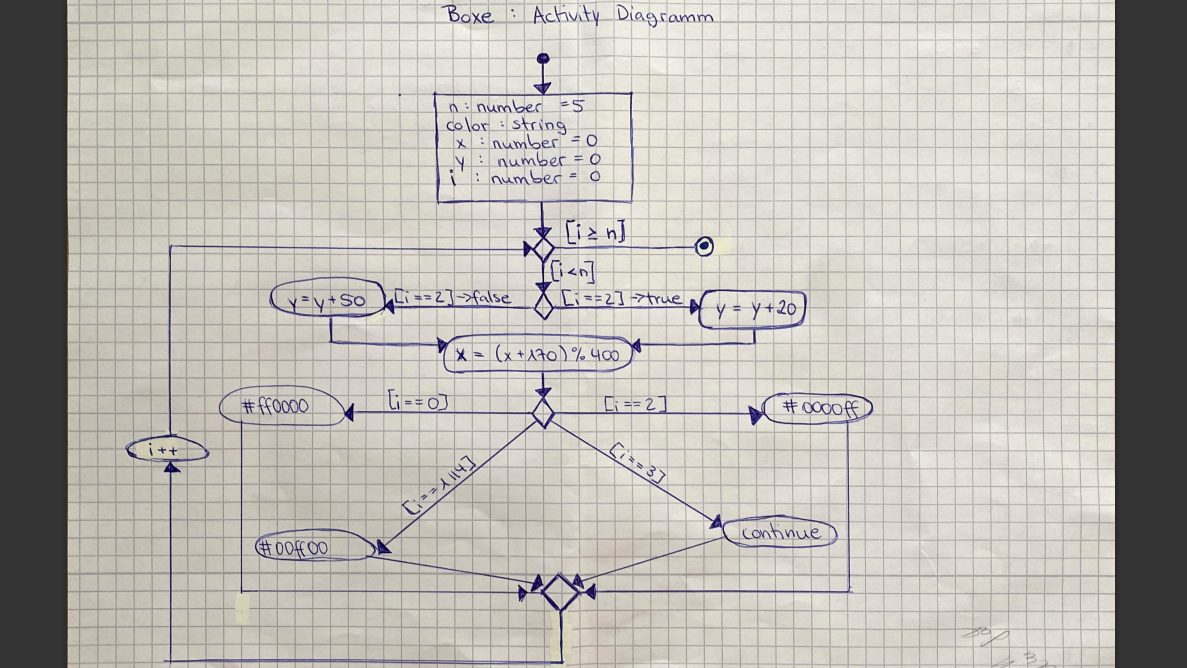 Boxe : Activity Diagramm
n : number = 5
color : string
x : number = 0
y : number = 0
i : number = 0
[i ≥ n]
[i<n]
y = y+50
[i==2]→false
[i==2]→true
y = y+20
x = (x+170)%400
#ff0000
[i==0]
[i==2]
#0000ff
i++
[i==1||4]
[i==3]
#00ff00
continue